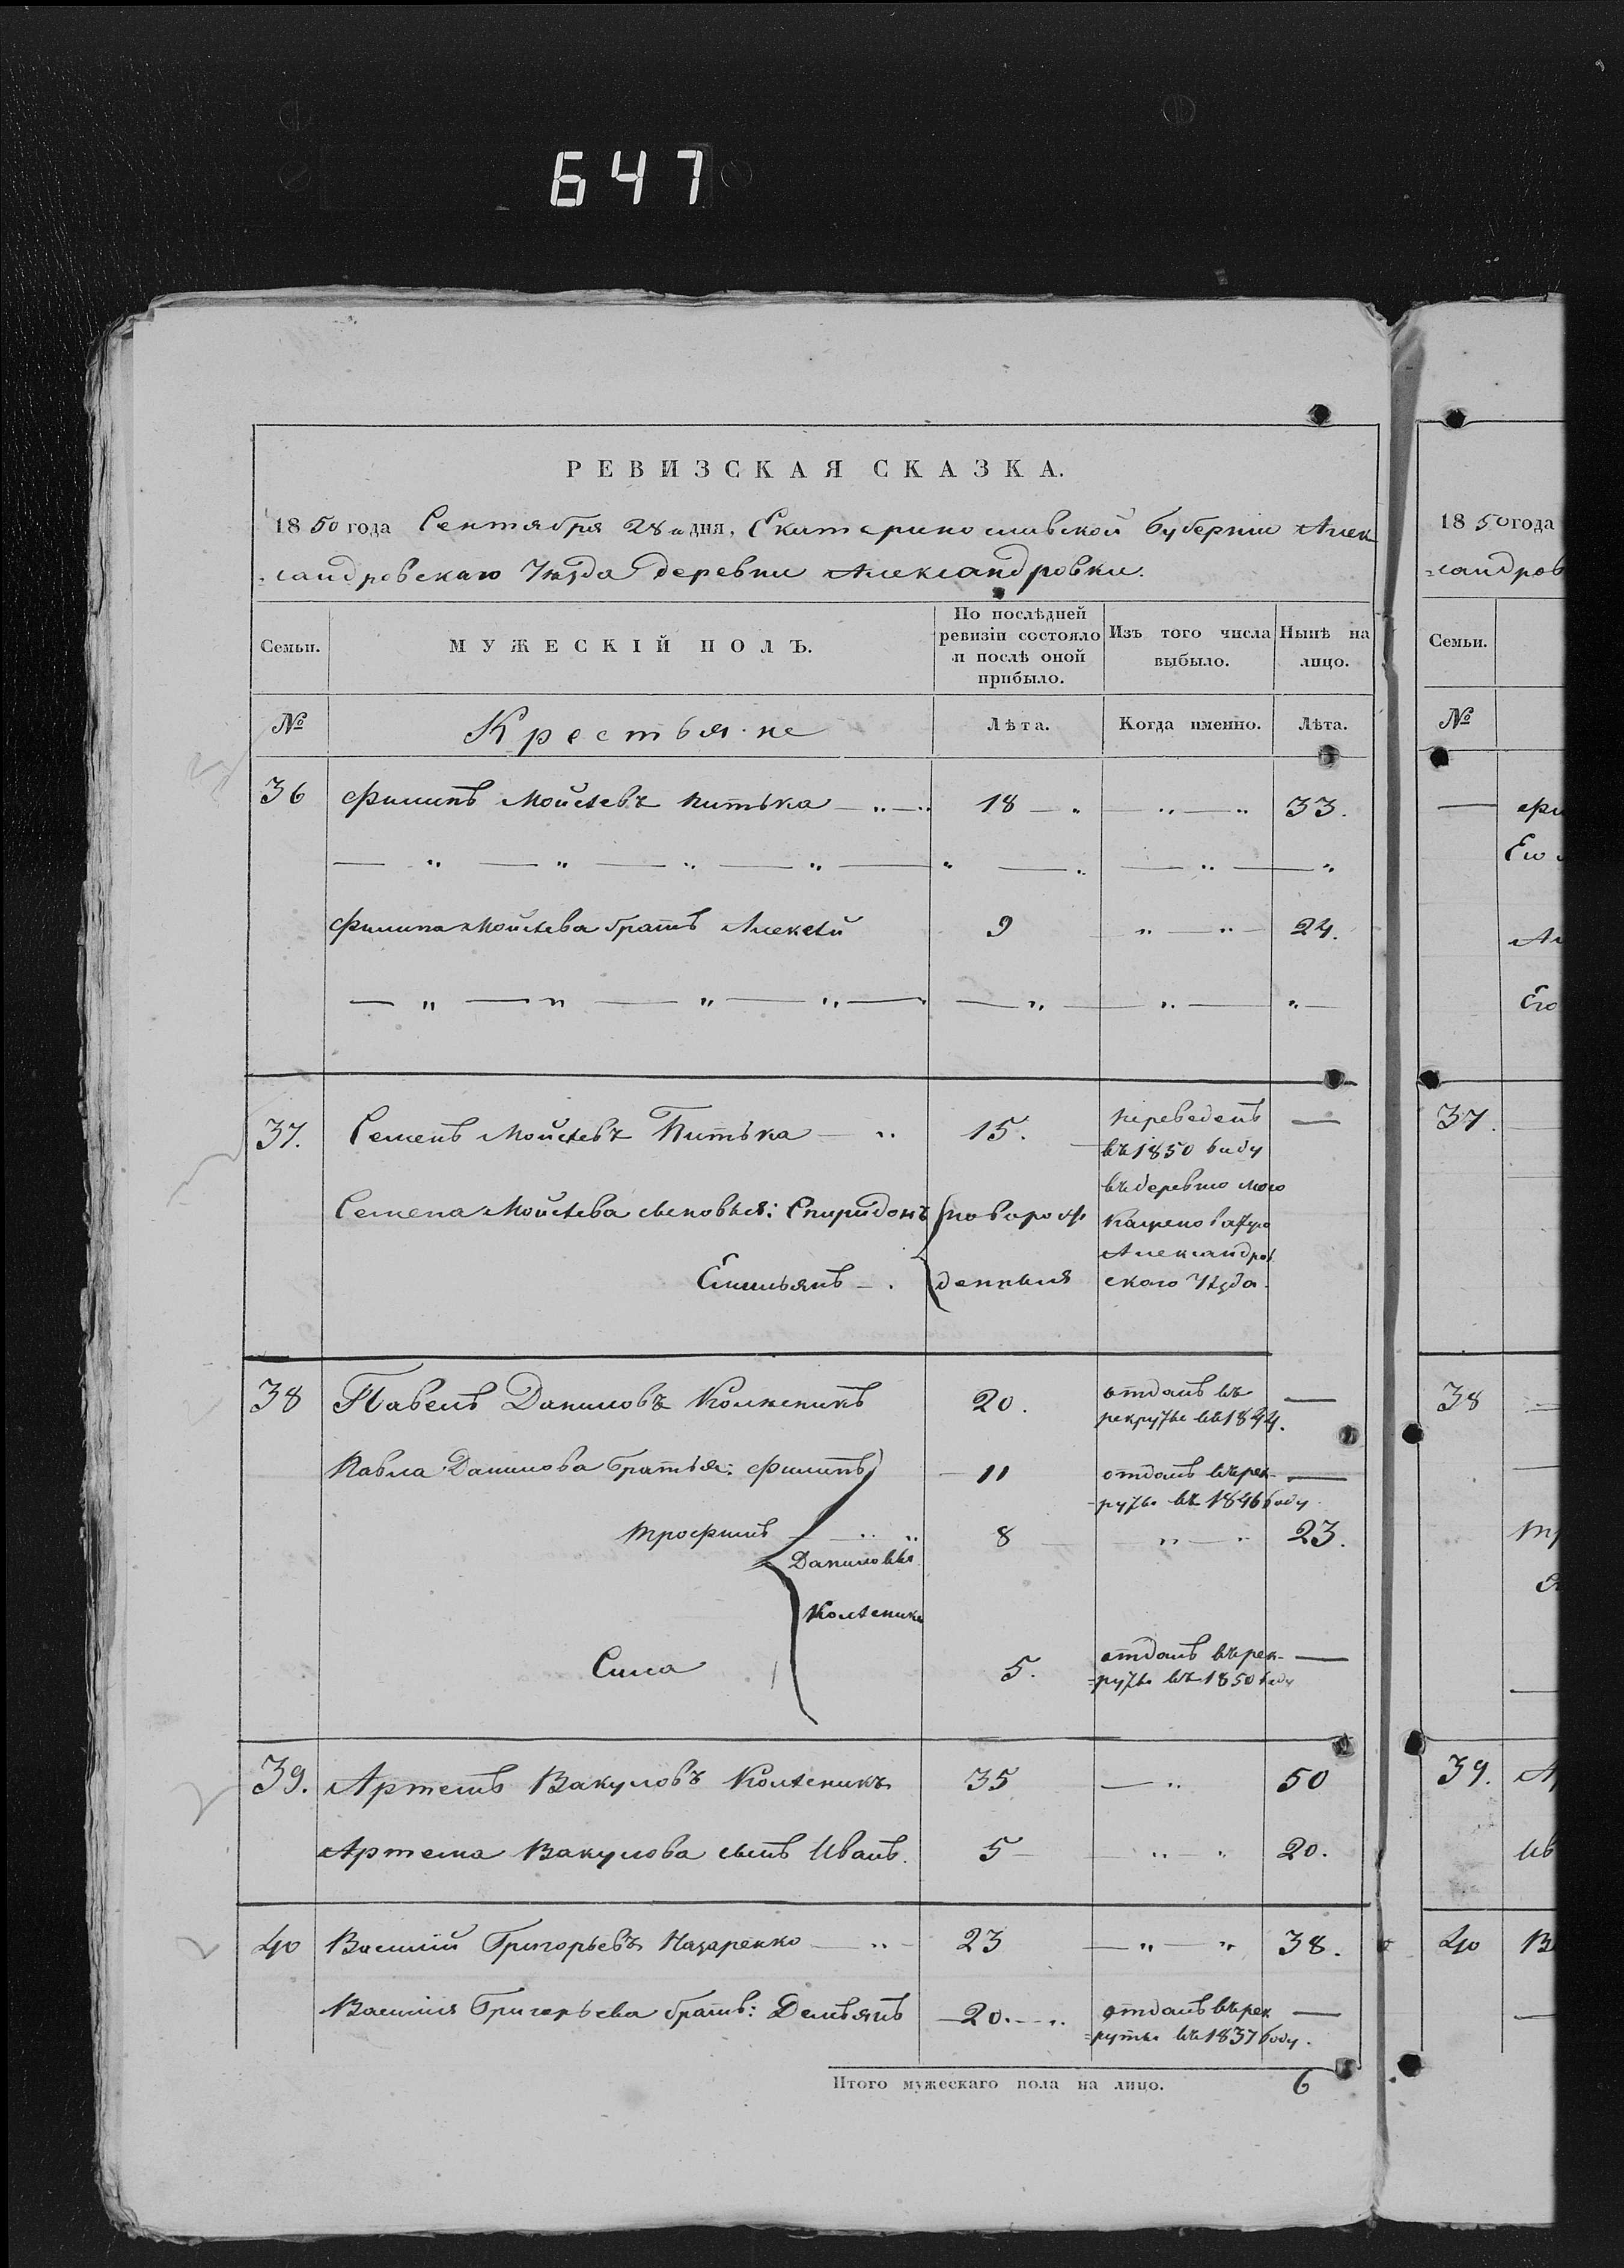 647
РЕВИЗСКАЯ СКАЗКА.
1850 года Сентября 28 дня, Екатеринославской Губерніи Алек
=сандровскаго Уѣзда деревни Александровки.
Семьи. МУЖЕСКІЙ ПОЛЪ. По послѣдней ревизіи состояло и послѣ оной прибыло. Изъ того числа выбыло. Нынѣ на лицо.
№ Крестьяне Лѣта. Когда именно. Лѣта.
36 Филипъ Мойсѣевъ Питька — „ — „ 18 — „ — „ — „ 33.
— „ — „ — „ — „ — „ — „ — „ — „
Филипа Мойсѣева братъ Алексѣй 9 „ — „ — 24.
— „ — „ — „ — „ — — „ — „ — „ —
37. Семенъ Мойсѣевъ Питька — „ 15. — переведенъ —
въ 1850 году
въ деревню мою
Семена Мойсѣева сыновья: Спиридонъ новорож
Александров
Емильянъ — . денныя скаго Уѣзда.
38 Павелъ Даниловъ Колѣсникъ 20. отданъ въ —
рекруты въ 1844.
Павла Данилова братья: Филипъ — 11 отданъ въ рек- —
-руты въ 1846 году.
Трофимъ — „ „ 8 — „ — „ 23.
Даниловы
Колѣсники
Сила 5. отданъ въ рек- —
=руты въ 1850 году
39. Артемъ Вакуловъ Колѣсникъ 35 — „ 50
Артема Вакулова сынъ Иванъ. 5 — — „ — „ 20.
40 Василій Григорьевъ Назаренко — „ — 23 — „ — „ 38.
Василія Григорьева братъ: Демьянъ — 20. — „ отданъ въ рек —
=руты въ 1837 году.
Итого мужескаго пола на лицо. 6
1850 года
=сандров
Семьи.
№
— Фи
Его
Ал
Его
37. —
38 —
—
Тр
—
39. А
Ив
40 В
—